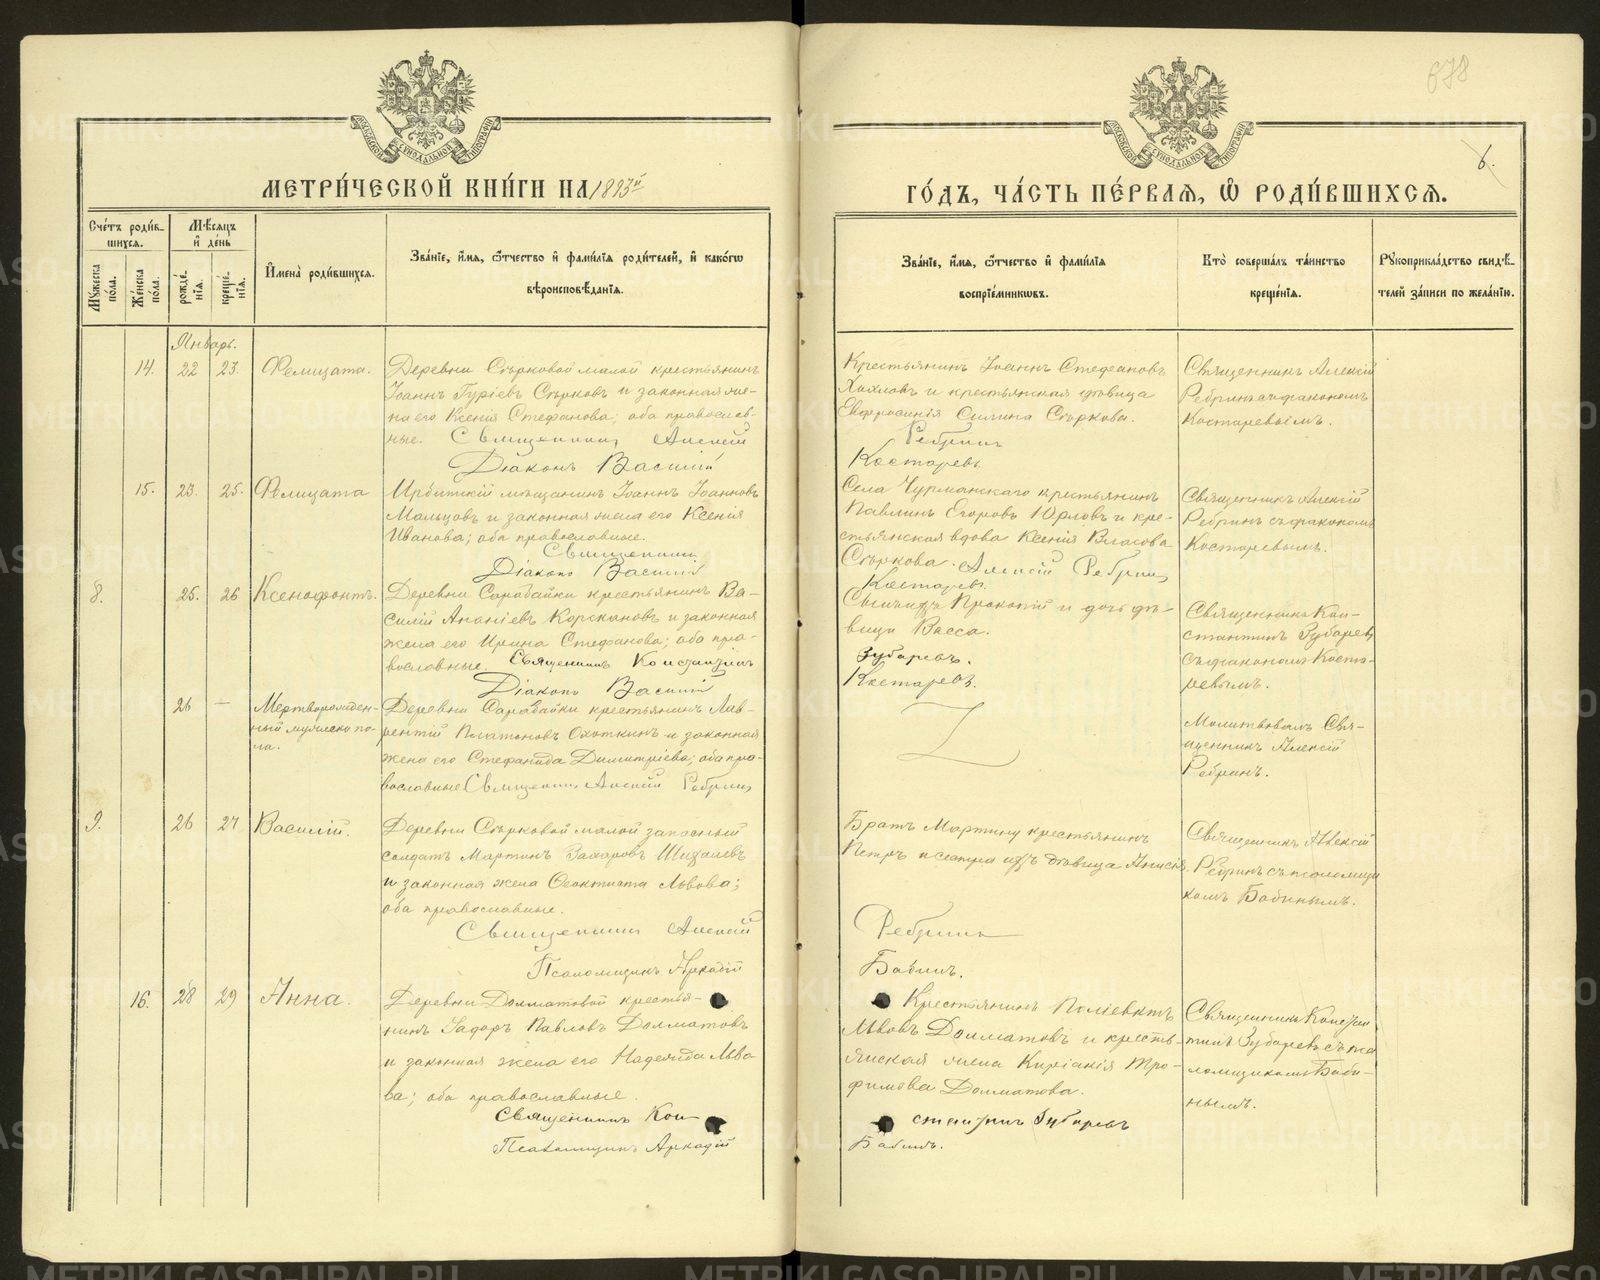 678
6.
МЕТРИ́ЧЕСКОЙ КНИ́ГИ НА 1893й
ГО́ДЪ, ЧА́СТЬ ПЕ́РВАЯ, Ѡ РОДИ́ВШИХСЯ.
Сче́тъ роди́в-
шихся.
Мѣ́сяцъ
и҆ де́нь
Му́жеска по́ла.
Же́нска по́ла.
рожде́-
нїя.
креще́-
нїя.
И҆мена̀ роди́вшихся.
Зва́нїе, и҆́мя, ѻ҆́тчество и҆ фами́лїя роди́телей, и҆ како́гѡ
вѣроисповѣ́данїя.
Зва́нїе, и҆́мя, ѻ҆́тчество и҆ фами́лїя
воспрїе́мникѡвъ.
Кто̀ соверша́лъ та́инство
креще́нїя.
Рꙋкоприкла́дство свидѣ́-
телей за́писи по жела́нїю.
Январь.
14. 22 23. Фелицата.
Деревни Сѣрковой малой крестьянинъ
Іоаннъ Гурiевъ Сѣрковъ и законная же-
на его Ксенія Стефанова; оба православ-
ные. Священникъ Алексій
Діаконъ Василій
Крестьянинъ Іоаннъ Стефановъ
Хохловъ и крестьянская дѣвица
Евфросинія Силина Сѣркова.
Ребринъ
Костаревъ
Священникъ Алексій
Ребринъ съ діакономъ
Костаревымъ.
15. 23. 25. Фелицата
Ирбитскій мѣщанинъ Іоаннъ Іоанновъ
Мальцовъ и законная жена его Ксенія
Иванова; оба православные.
Священникъ
Діаконъ Василій
Села Чурманскаго крестьянинъ
Павлинъ Егоровъ Юрловъ и кре-
стьянская вдова Ксенія Власова
Сѣркова. Алексій Ребринъ
Костаревъ.
Священникъ Алексій
Ребринъ съ діакономъ
Костаревымъ.
8. 25. 26 Ксенофонтъ.
Деревни Сарабайки крестьянинъ Ва-
силій Ананіевъ Корскановъ и законная
жена его Ирина Стефанова; оба пра-
вославные. Священникъ Константинъ
Діаконъ Василій
Прокопій и дочь дѣ-
вица Васса.
Зубаревъ.
Костаревъ.
Священникъ Кон-
стантинъ Зубаревъ
съ діакономъ Коста-
ревымъ.
26 — Мертворожден-
ный мужеска по-
ла.
Деревни Сарабайки крестьянинъ Лав-
рентій Платоновъ Охоткинъ и законная
жена его Стефанида Димитріева; оба пра-
вославные Священникъ Алексій Ребринъ
Молитвовалъ Свя-
щенникъ Алексій
Ребринъ.
9. 26 27 Василій.
Деревни Сѣрковой малой запасный
солдатъ Мартинъ Захаровъ Шихалевъ
и законная жена Феоктиста Львова;
оба православные.
Священникъ Алексій
Псаломщикъ Аркадій
Братъ Мартину крестьянинъ
Петръ и сестра ихъ дѣвица Анисія.
Ребринъ
Бабинъ.
Священникъ Алексій
Ребринъ съ псаломщи
комъ Бабинымъ.
16. 28 29 Анна.
Деревни Долматовой крестья-
нинъ Ѳадоръ Павловъ Долматовъ
и законная жена его Надежда Льво
ва; оба православные.
Священникъ Кон
Псаломщикъ Аркадій
Крестьянинъ Поліевктъ
Львовъ Долматовъ и кресть-
янская жена Киріакія Тро-
фимова Долматова.
стантинъ Зубаревъ
Бабинъ.
Священникъ Констан
тинъ Зубаревъ съ пса
ломщикомъ Баби-
нымъ.
METRIKI.GASO-URAL.RU